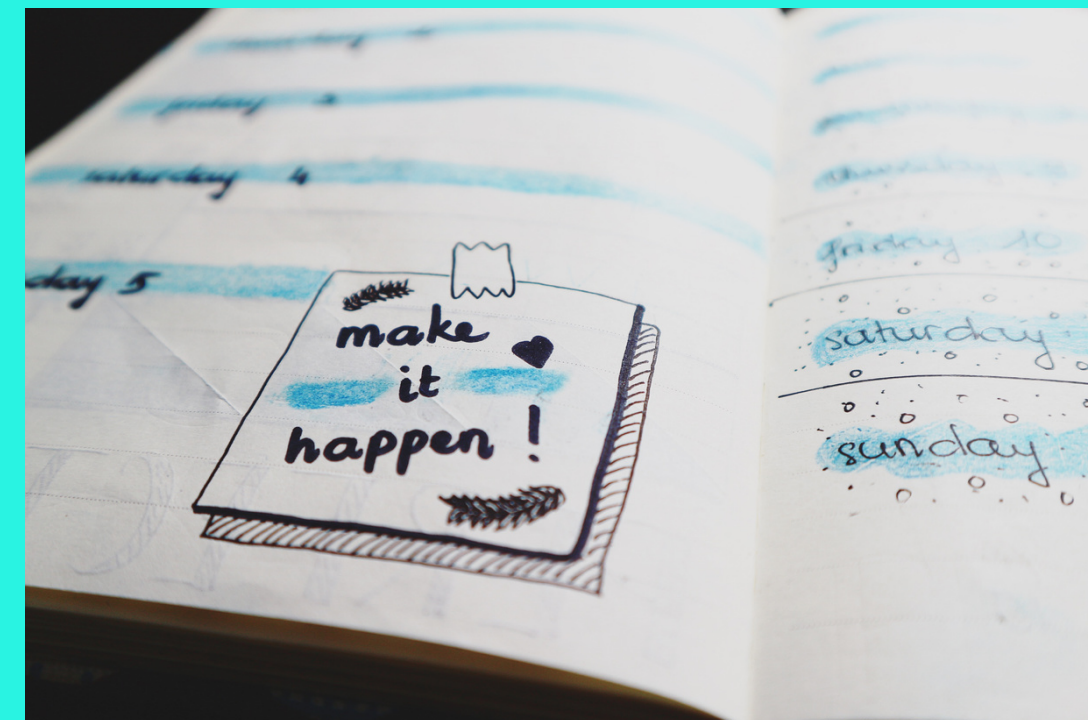 friday 3
saturday 4
day 5
make
it
happen !
thursday
friday 10
saturday
sunday